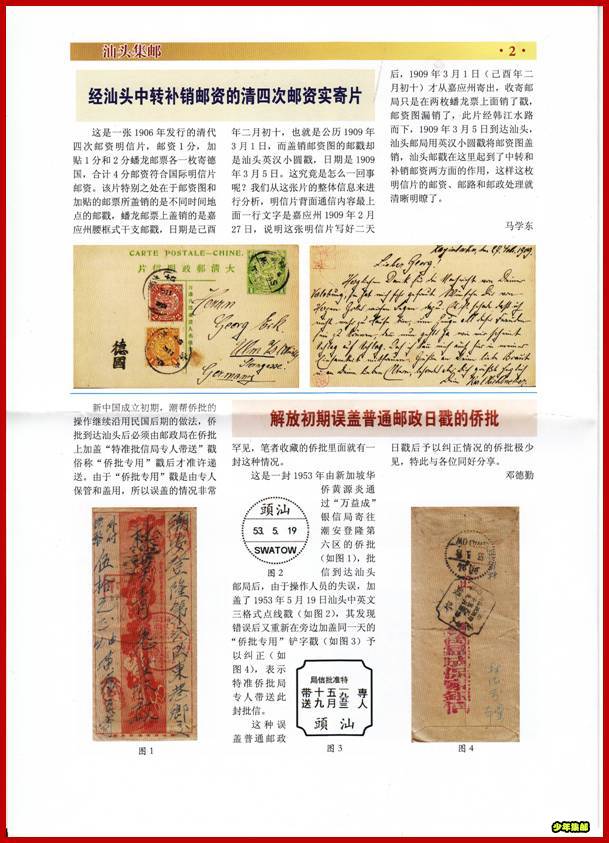 汕头集邮
·2·
经汕头中转补销邮资的清四次邮资实寄片
这是一张 1906 年发行的清代
四次邮资明信片，邮资 1 分，加
贴 1 分和 2 分蟠龙邮票各一枚寄德
国，合计 4 分邮资符合国际明信片
邮资。该片特别之处在于邮资图和
加贴的邮票所盖销的是不同时间地
点的邮戳，蟠龙邮票上盖销的是嘉
应州腰框式干支邮戳，日期是己酉
年二月初十，也就是公历 1909 年
3 月 1 日，而盖销邮资图的邮戳却
是汕头英汉小圆戳，日期是 1909
年 3 月 5 日。这究竟是怎么一回事
呢？我们从这张片的整体信息来进
行分析，明信片背面通信内容最上
面一行文字是嘉应州 1909 年 2 月
27 日，说明这张明信片写好二天
后，1909 年 3 月 1 日（己酉年二
月初十）才从嘉应州寄出，收寄邮
局只是在两枚蟠龙票上面销了戳，
邮资图漏销了，此片经韩江水路
而下，1909 年 3 月 5 日到达汕头，
汕头邮局用英汉小圆戳将邮资图盖
销，汕头邮戳在这里起到了中转和
补销邮资两方面的作用，这样这枚
明信片的邮资、邮路和邮政处理就
清晰明瞭了。
马学东
CARTE POSTALE—CHINE.
片信明政郵清大
德國
Herrn
Georg
Germany
Lieber Georg
解放初期误盖普通邮政日戳的侨批
新中国成立初期，潮帮侨批的
操作继续沿用民国后期的做法，侨
批到达汕头后必须由邮政局在侨批
上加盖“特准批信局专人带送”戳
俗称“侨批专用”戳后才准许递
送。由于“侨批专用”戳是由专人
保管和盖用，所以误盖的情况非常
罕见，笔者收藏的侨批里面就有一
封这种情况。
这是一封 1953 年由新加坡华
侨黄源炎通
过“万益成”
银信局寄往
潮安登隆第
六区的侨批
（如图 1），批
信到达汕头
邮局后，由于操作人员的失误，加
盖了 1953 年 5 月 19 日汕头中英文
三格式点线戳（如图 2），其发现
错误后又重新在旁边加盖同一天的
“侨批专用”铲字戳（如图 3）予
以纠正（如
图 4），表示
特准侨批局
专人带送此
封批信。
这种误
盖普通邮政
日戳后予以纠正情况的侨批极少
见，特此与各位同好分享。
邓德勤
頭汕
53. 5. 19
SWATOW
图 2
局信批准特
带送
十九
五月
一九五三
專人
頭汕
图 3
图 1
图 4
少年集邮